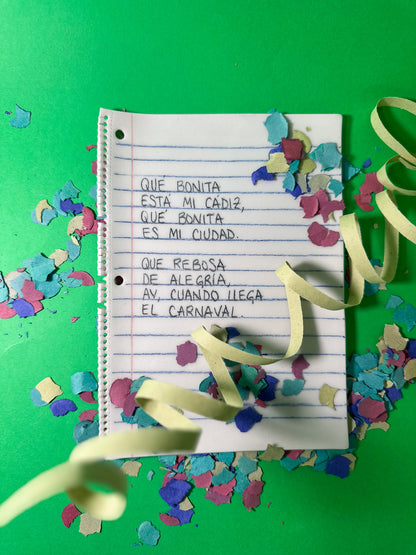 QUÉ BONITA
ESTÁ MI CÁDIZ,
QUÉ BONITA
ES MI CIUDAD.
QUE REBOSA
DE ALEGRÍA,
AY, CUANDO LLEGA
EL CARNAVAL.